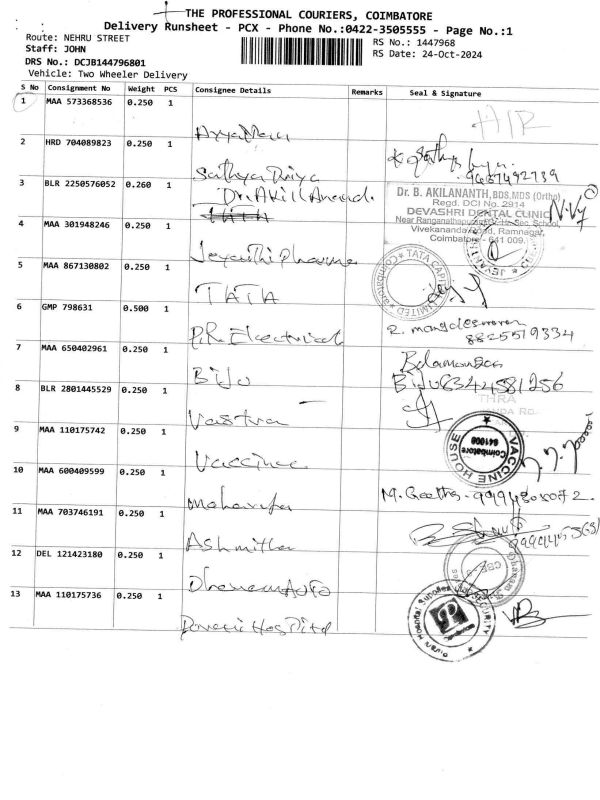 THE PROFESSIONAL COURIERS, COIMBATORE
Delivery Runsheet - PCX - Phone No.:0422-3505555 - Page No.:1
Route: NEHRU STREET
RS No.: 1447968
Staff: JOHN
RS Date: 24-Oct-2024
DRS No.: DCJB144796801
Vehicle: Two Wheeler Delivery
S No Consignment No Weight PCS Consignee Details Remarks Seal & Signature
1 MAA 573368536 0.250 1
2 HRD 704089823 0.250 1
Sathya Priya
3 BLR 2250576052 0.260 1
Dr. Akil Anand.
Dr. B. AKILANANTH, BDS,MDS (Ortho)
Regd. DCI No. 2914
DEVASHRI DENTAL CLINIC
Vivekananda Road, Ramnagar,
Coimbatore - 641 009.
4 MAA 301948246 0.250 1
Jeyanthi Pharma
5 MAA 867130802 0.250 1
TATA CAPITAL LIMITED
Coimbatore
TATA
6 GMP 798631 0.500 1
P.R. Electrical
8825519334
7 MAA 650402961 0.250 1
BiJu
BiJu 6344581256
8 BLR 2801445529 0.250 1
Vastra
9 MAA 110175742 0.250 1
VACCINE HOUSE
Coimbatore
641009
Vaccine
10 MAA 600409599 0.250 1
M. Geetha
11 MAA 703746191 0.250 1
Ashmitha
12 DEL 121423180 0.250 1
13 MAA 110175736 0.250 1
Hospital